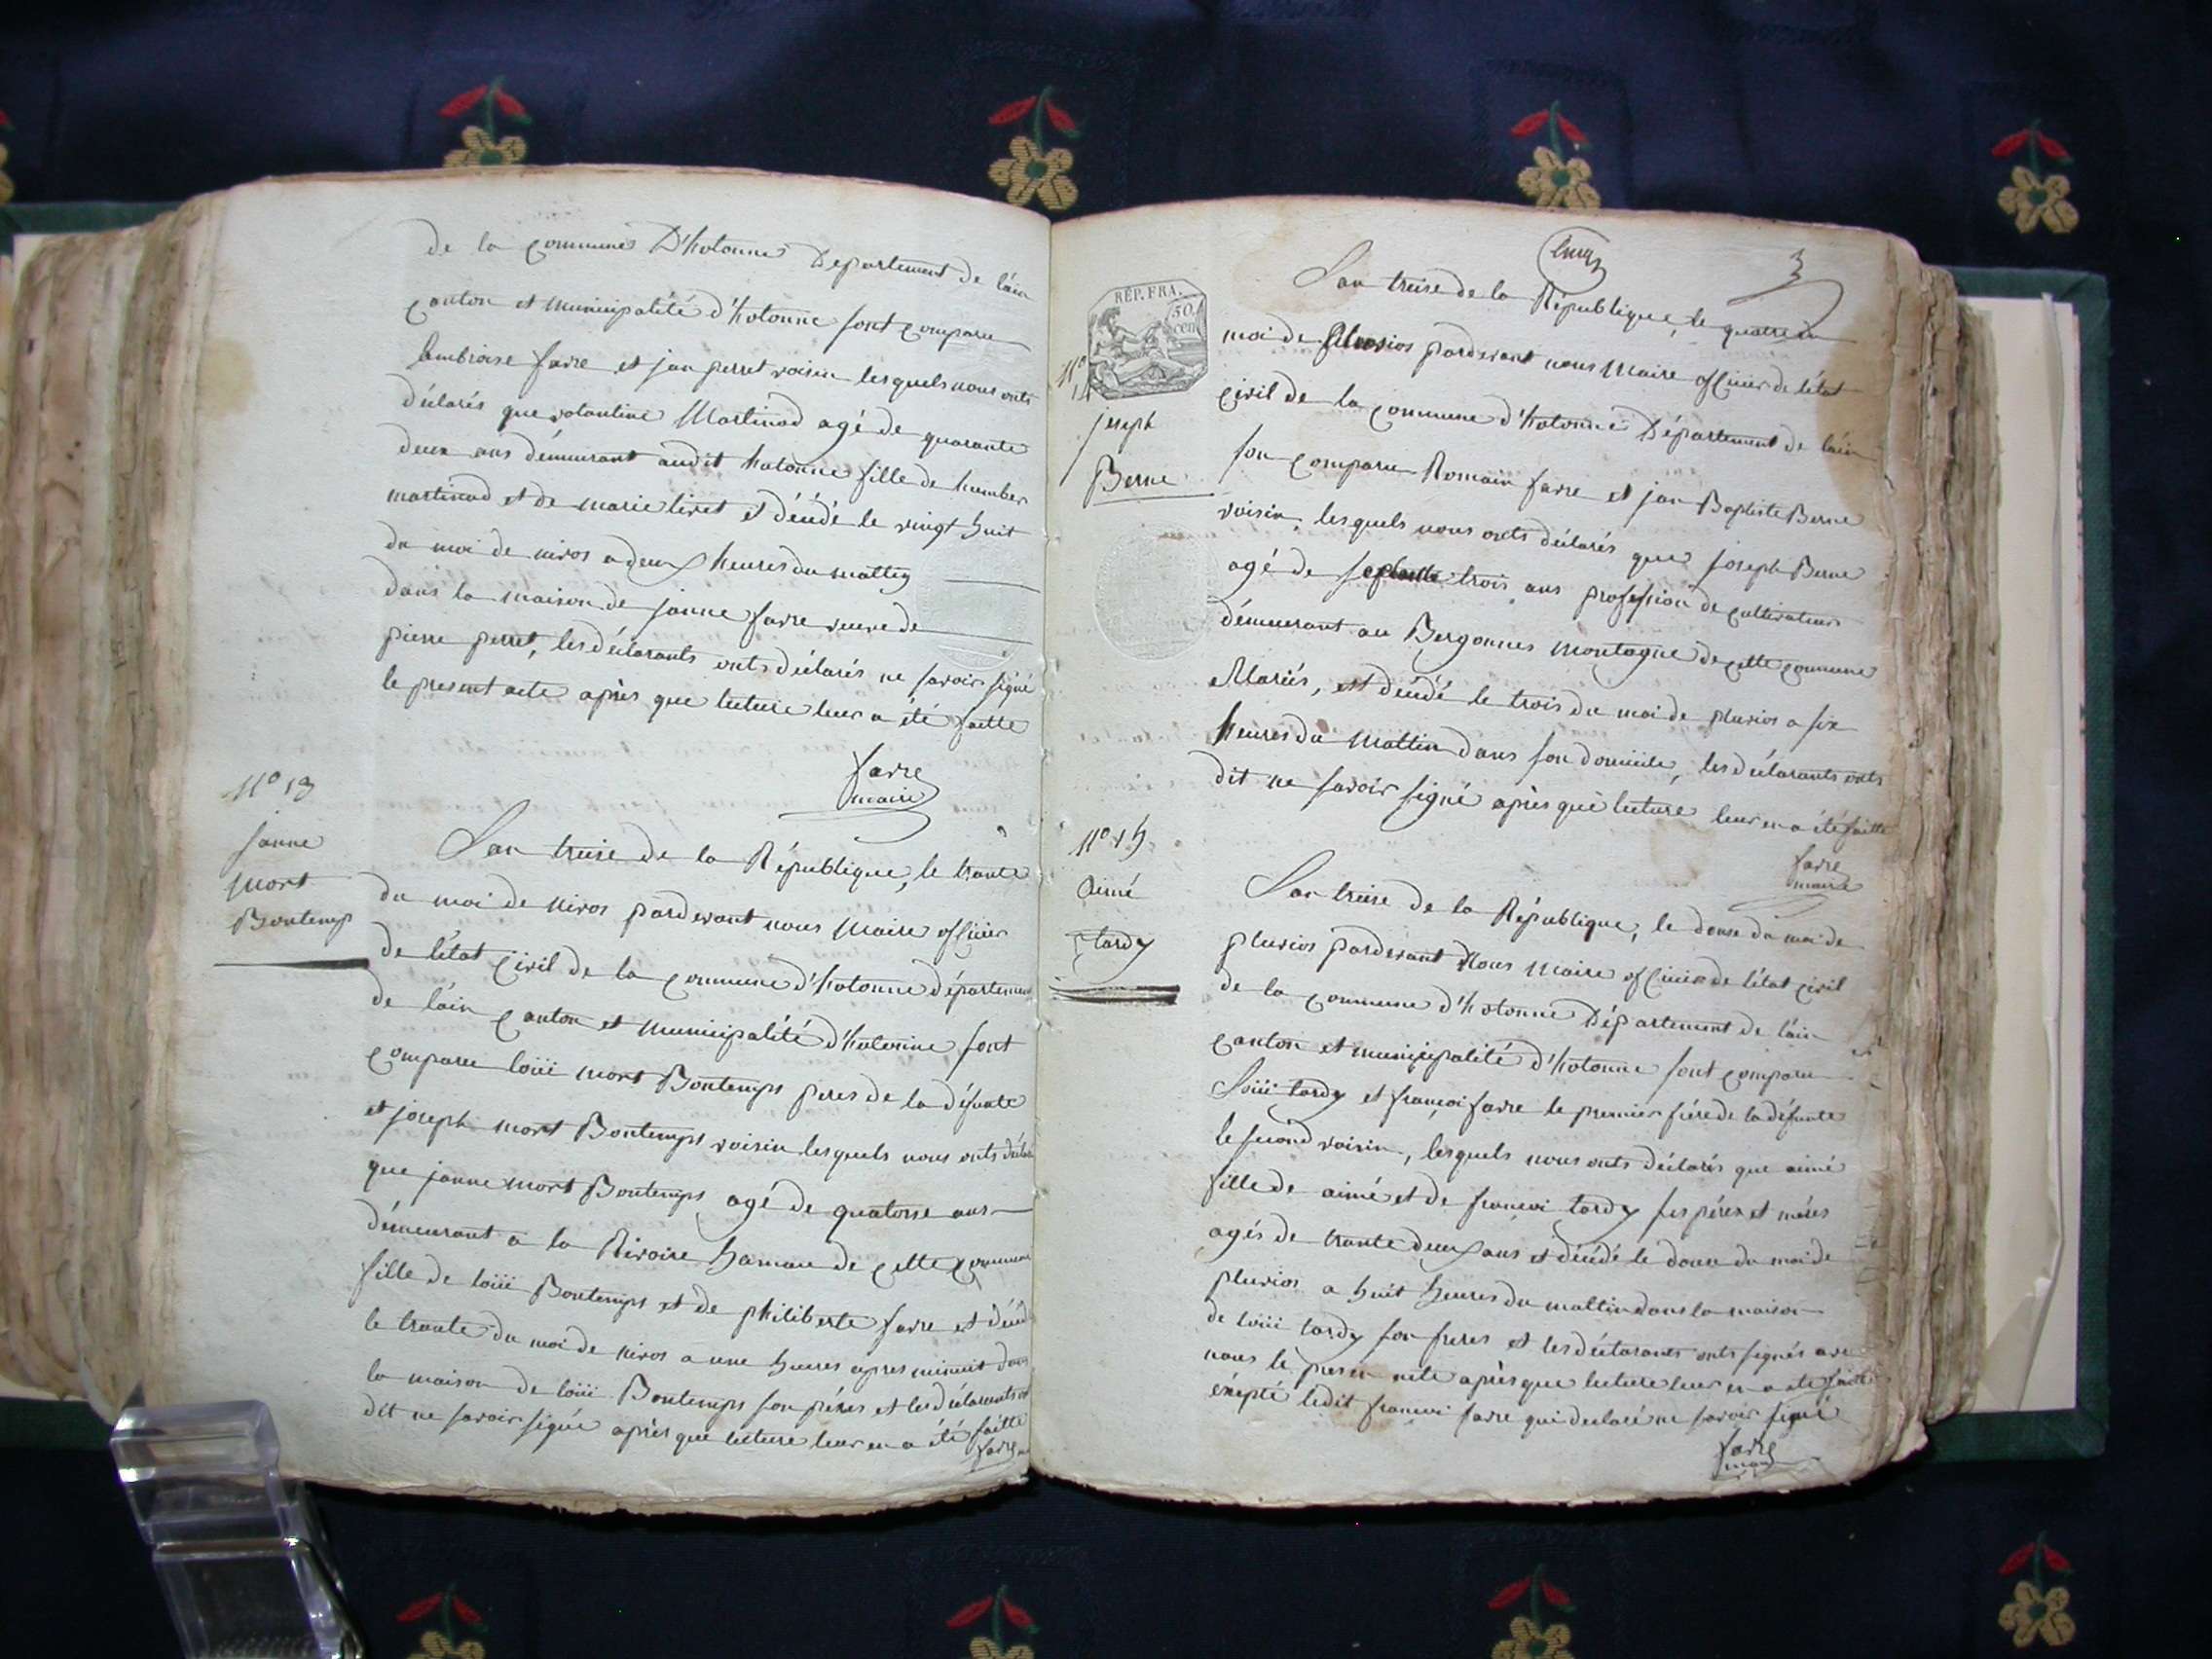 de la commune D'hotonne Departement de láin
canton et municipalité d'hotonne sont comparu
lambroise favre et jan perret voisin lesquels nous onts
déclarés que valantine Martinod agé de quarante
deux ans démeurant audit hotonne fille de humber
martinod et de marie livet et décédé le vingt huit
du moi de nivos a deux heures du mattin
dans la maison de janne favre veuve de
pierre perret, les déclarants onts déclarés ne savoir signé
le present acte après que lecture leur a été faitte
favre
maire
N° 13
janne
mort
Bontemp
Lan treise de la République, le trante
du moi de nivos pardevant nous Maire officier
de létat civil de la commune d'hotonne département
de láin canton et municipalité d'hotonne sont
comparu loüi mort Bontemps peres de la défunte
et joseph mort Bontemps voisin lesquels nous onts déclaré
que janne mort Bontemps agé de quatorse ans
démeurant a la Rivoire hamau de cette commune
fille de loüi Bontemps et de philiberte favre et décédé
le trante du moi de nivos a une heures apres minuit dans
la maison de loüi Bontemps son péres et les déclarants ont
dit ne savoir signé après que lecture leur en a été faitte
favre
3
RÉP. FRA.
50
cen
N°
14
joseph
Berne
Lan treise de la République, le quatre du
moi de pluvios pardevant nous Maire officier de létat
civil de la commune d'hotonne Département de láin
son comparu Romain favre et jan Baptiste Berne
voisin, lesquels nous onts déclarés que joseph Berne
agé de septante trois ans profession de cultivateur
démeurant au Bergonnes montagne de cette commune
Mariés, est décédé le trois du moi de pluvios a six
heures du mattin dans son domicile, les déclarants onts
dit ne savoir signé après que lecture leur en a été faitte
favre
maire
N° 15
aimé
tardy
Lan treise de la République, le douse du moi de
pluvios pardevant Nous Maire officier de létat civil
de la commune d'hotonne Département de láin
canton et municipalité d'hotonne sont comparu
Loüi tardy et françoi favre le premier frére de la défunte
le second voisin, lesquels nous onts déclarés que aimé
fille de aimé et de françoi tardy ses péres et méres
agés de trante deux ans et décédé le douse du moi de
pluvios a huit heures du mattin dans la maison
de loüi tardy son freres et les déclarants onts signés avec
nous le presen acte après que lecture leur en a été faitte
éxepté ledit françoi favre qui declaré ne savoir signé
favre
maire